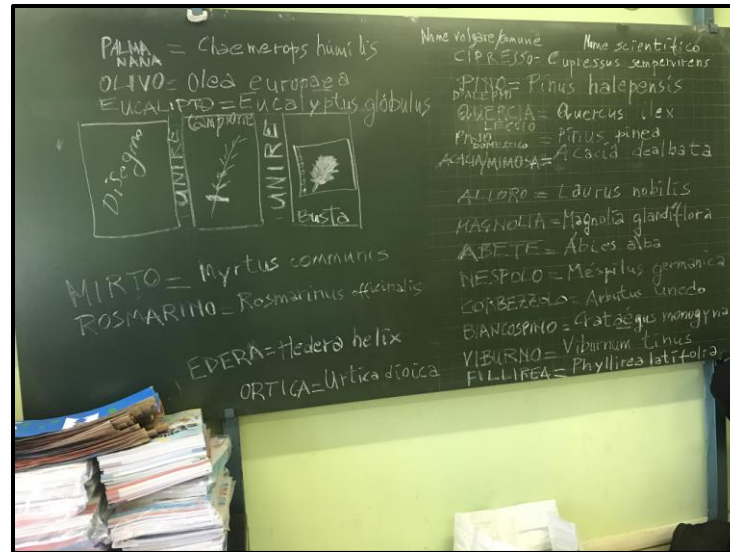 PALMA NANA = Chaemerops húmilis
OLIVO = Olea europaea
EUCALIPTO = Eucalyptus glóbulus
Disegno
UNIRE
Campione
UNIRE
Busta
MIRTO = Myrtus communis
ROSMARINO = Rosmarinus officinalis
EDERA = Hedera helix
ORTICA = Urtica dioica
Nome volgare/comune Nome scientifico
CIPRESSO = Cupressus sempervirens
PINO D'ALEPPO = Pinus halepensis
QUERCIA LECCIO = Quercus ilex
PINO DOMESTICO = Pinus pinea
ACACIA/MIMOSA = Acacia dealbata
ALLORO = Laurus nobilis
MAGNOLIA = Magnolia glandiflora
ABETE = Abies alba
NESPOLO = Mespilus germanica
CORBEZZOLO = Arbutus unedo
BIANCOSPINO = Crataegus monogyna
VIBURNO = Viburnum tinus
FILLIREA = Phyllirea latifolia